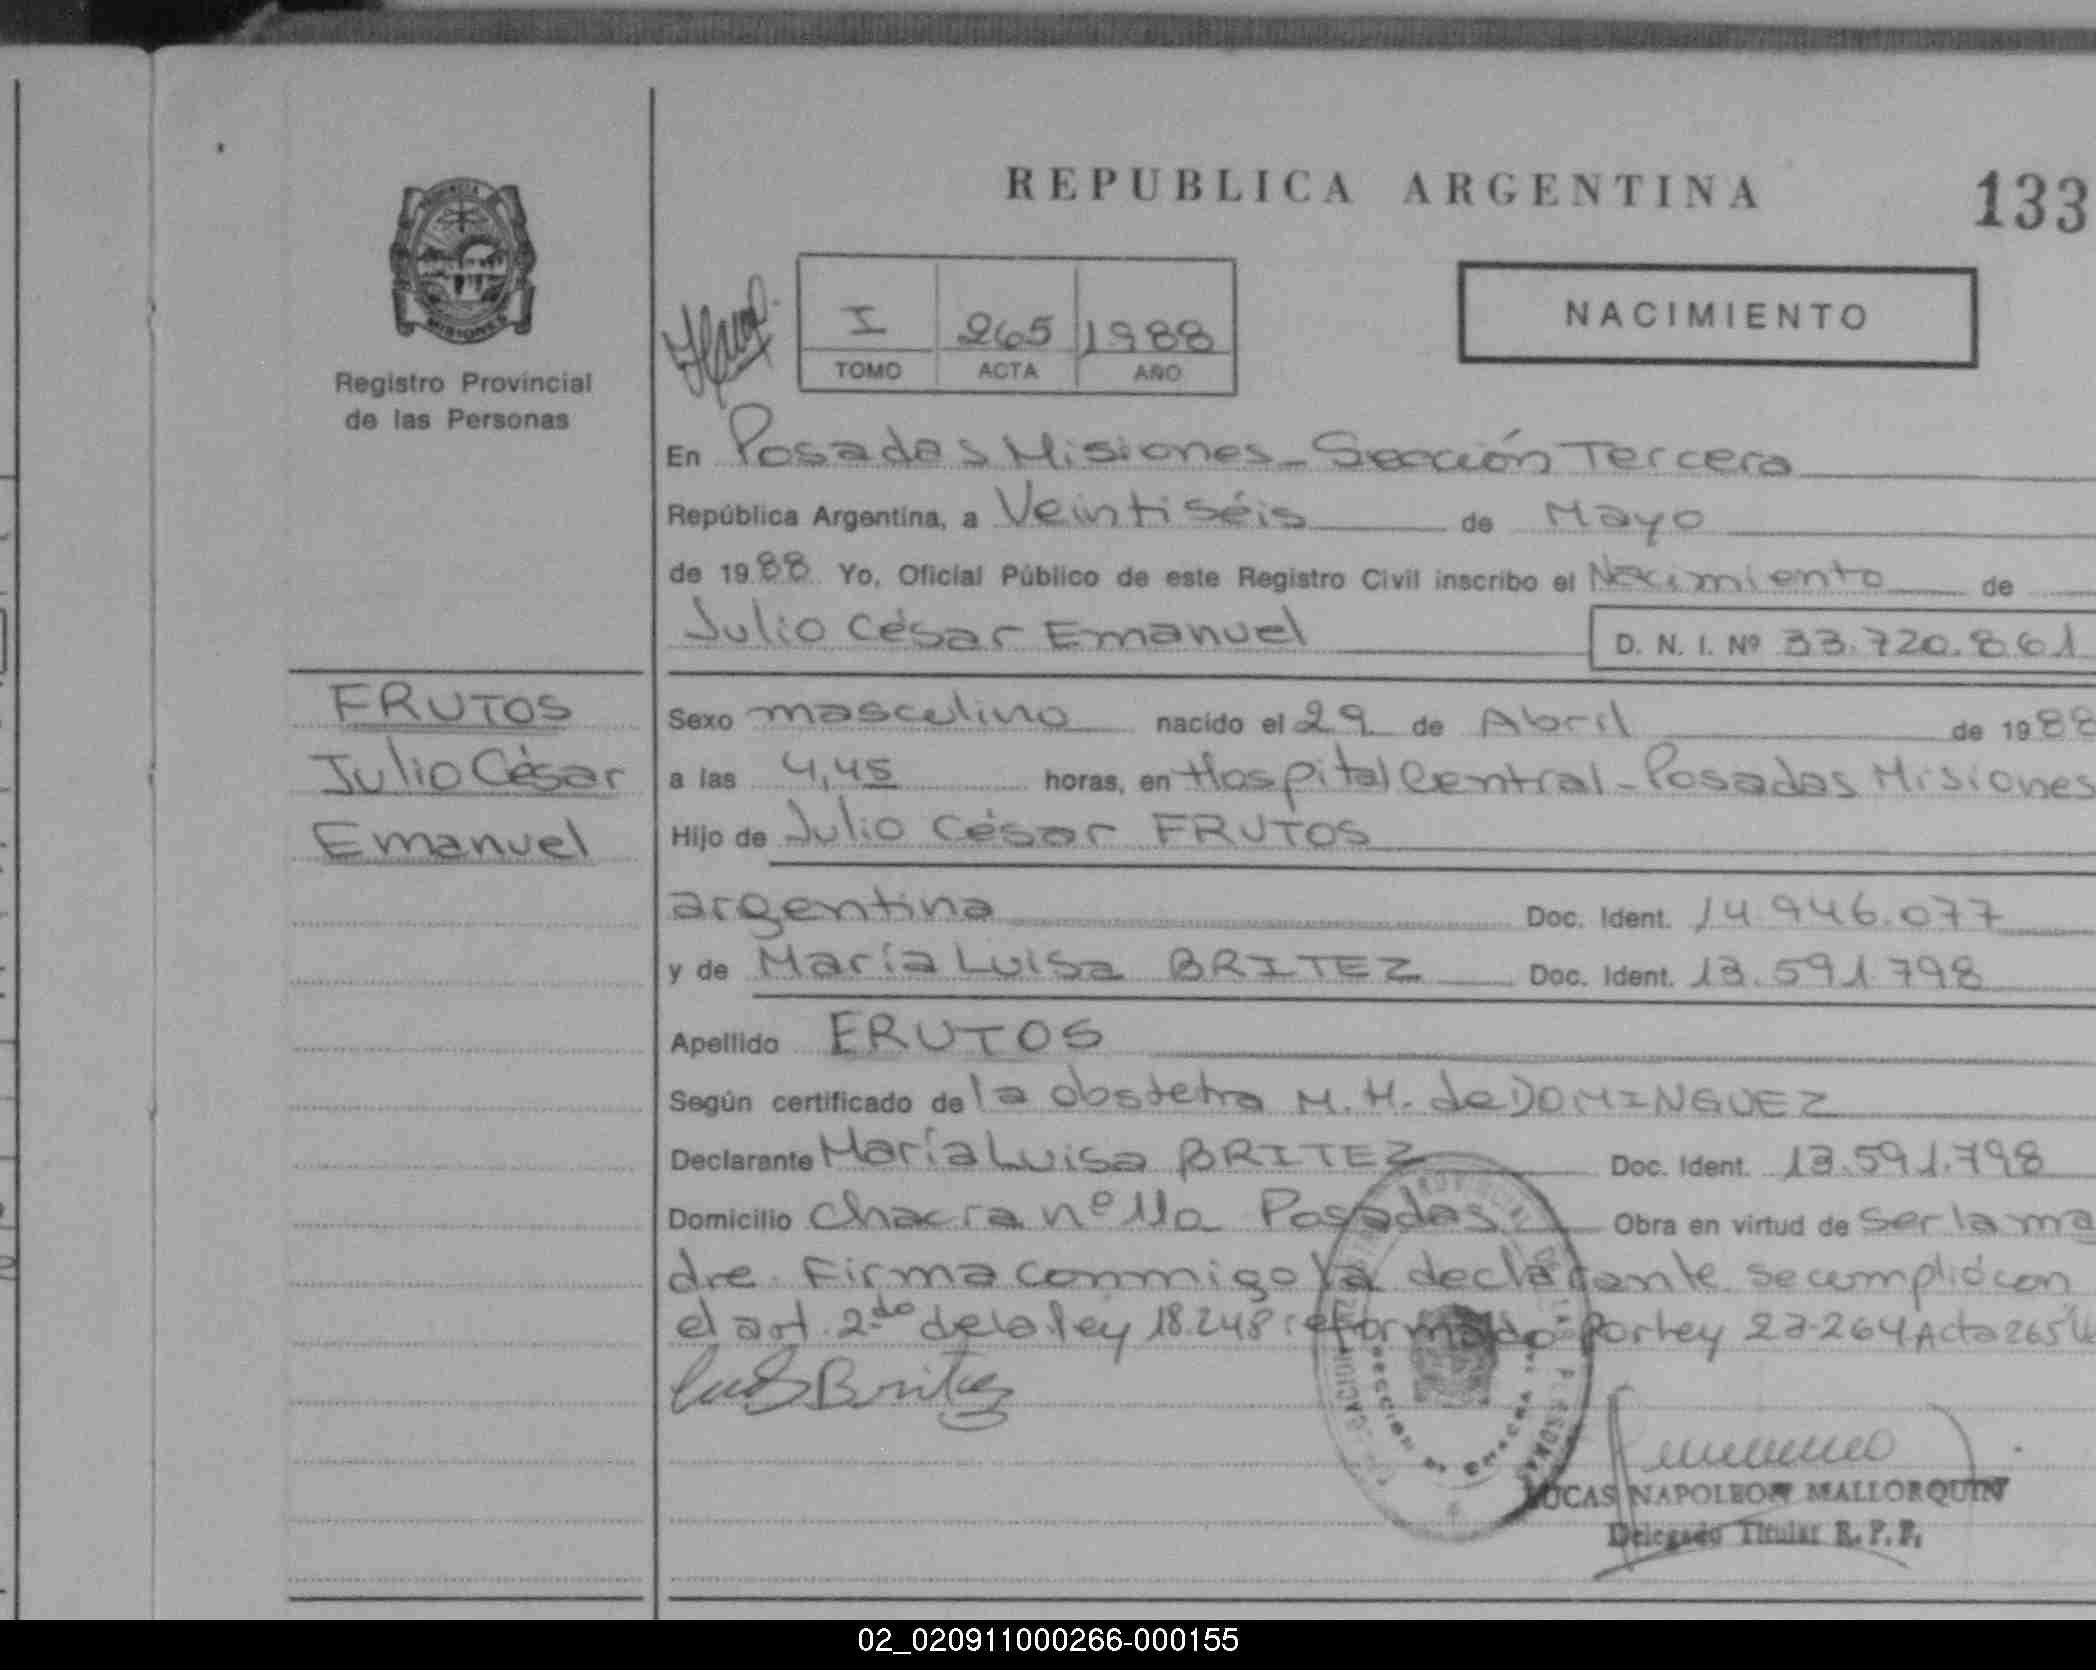 REPUBLICA ARGENTINA
133
PROVINCIA
MISIONES
Registro Provincial
de las Personas
I 265 1988
TOMO ACTA AÑO
NACIMIENTO
En Posadas Misiones - Sección Tercera
República Argentina, a Veintiséis de Mayo
de 1988 Yo, Oficial Público de este Registro Civil inscribo el Nacimiento de
Julio César Emanuel D. N. I. Nº 33.720.861
FRUTOS
Julio César
Emanuel
Sexo masculino nacido el 29 de Abril de 1988
a las 4,45 horas, en Hospital Central - Posadas Misiones
Hijo de Julio César FRUTOS
argentina Doc. Ident. 14.946.077
y de María Luisa BRITEZ Doc. Ident. 13.591.798
Apellido FRUTOS
Según certificado de la obstetra M. H. de DOMINGUEZ
Declarante María Luisa BRITEZ Doc. Ident. 13.591.798
Domicilio Chacra nº 110 Posadas Obra en virtud de ser la ma
dre. Firma conmigo la declarante se cumplió con
el art. 2do de la ley 18.248 reformado por ley 23.264 Acta 265
Britez
LUCAS NAPOLEON MALLORQUIN
Delegado Titular R. P. P.
02_020911000266-000155